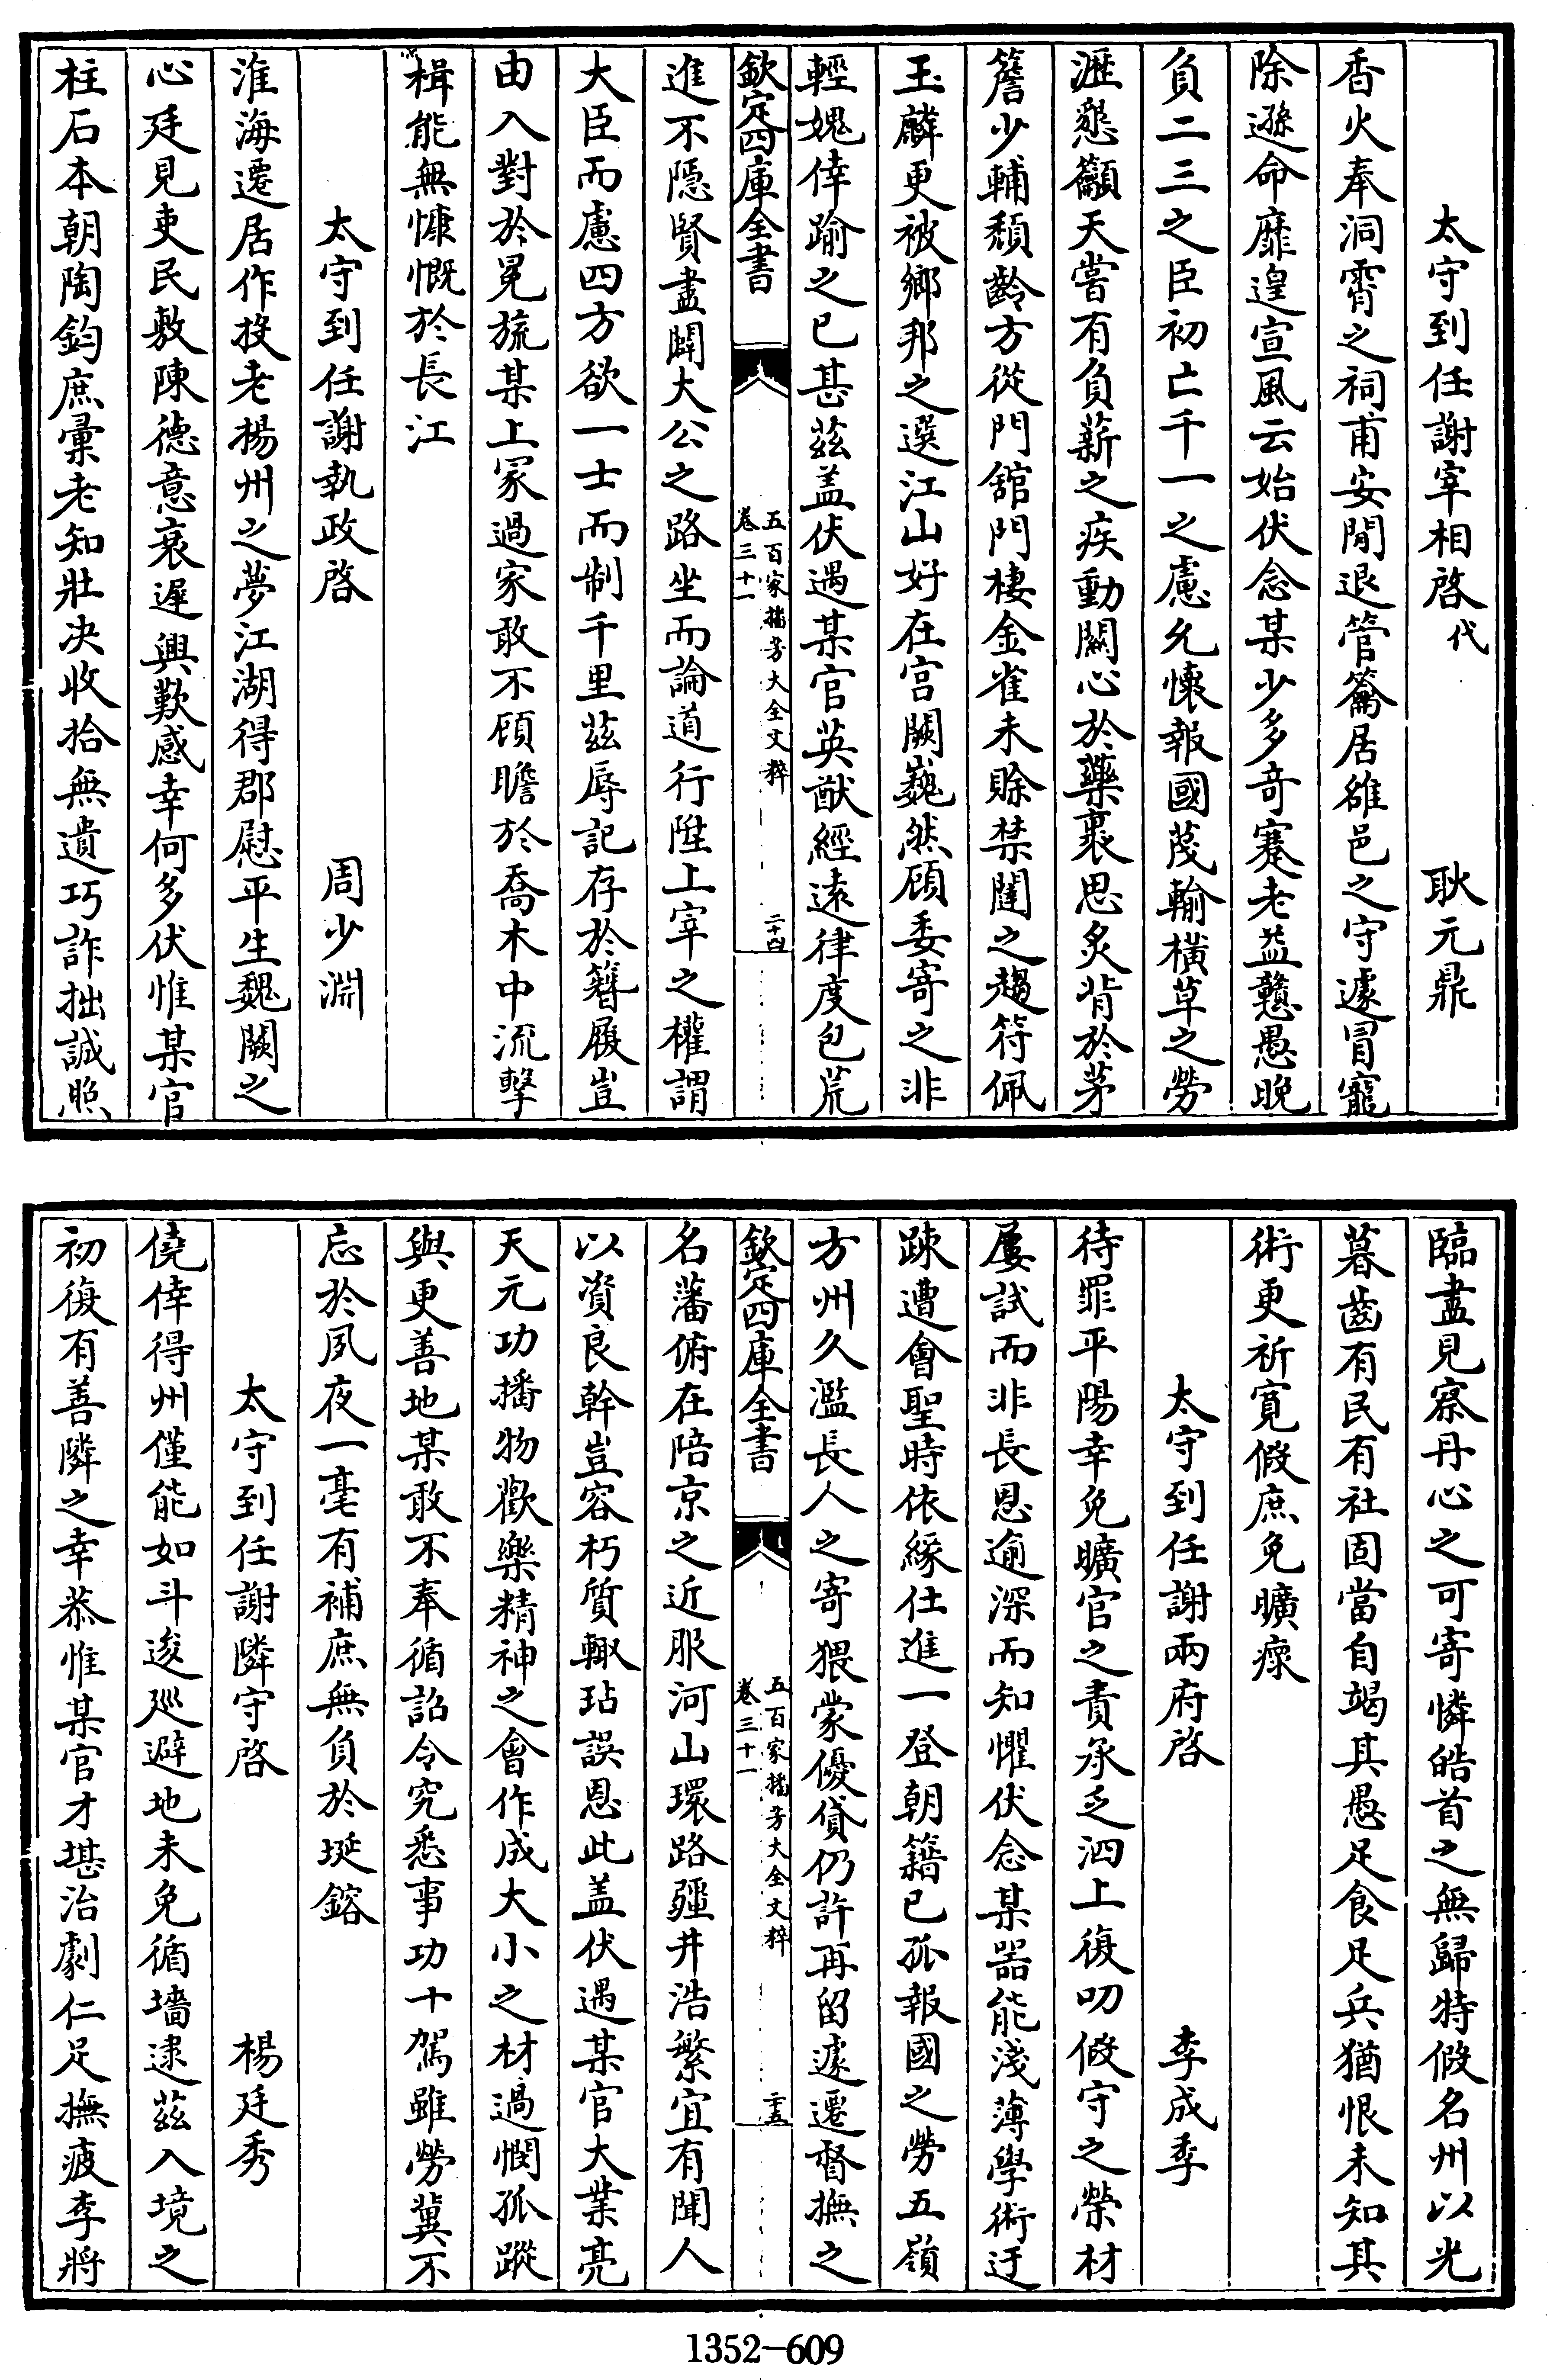 太守到任謝宰相啓代 耿元鼎
香火奉洞霄之祠甫安閒退管籥居雒邑之守遽冒寵
除遜命靡遑宣風云始伏念某少多竒蹇老益戇愚晚
負二三之臣初亡千一之慮允懐報國茂輸横草之勞
瀝懇籲天嘗有負薪之疾動闗心於藥裹思炙背於茅
簷少輔頽齡方從門舘門棲金雀未賖禁闥之趨符佩
玉麟更被鄉邦之選江山好在宫闕巍然顧委寄之非
輕媿倖踰之已甚茲盖伏遇某官英猷經逺律度包荒
欽定四庫全書 五百家播芳大全文粹 卷三十一 二十四
進不隱賢盡闢大公之路坐而論道行陞上宰之權謂
大臣而慮四方欲一士而制千里茲辱記存於簪履豈
由入對於冕旒某上冡過家敢不顧瞻於喬木中流擊
楫能無慷慨於長江
太守到任謝執政啓 周少淵
淮海遷居作投老揚州之夢江湖得郡慰平生魏闕之
心廷見吏民敷陳德意衰遲興歎感幸何多伏惟某官
柱石本朝陶鈞庶彚老知壯决收拾無遺巧詐拙誠照
臨盡見察丹心之可寄憐皓首之無歸特假名州以光
暮齒有民有社固當自竭其愚足食足兵猶恨未知其
術更祈寛假庶免曠瘝
太守到任謝兩府啓 李成季
待罪平陽幸免曠官之責承乏泗上復叨假守之榮材
屢試而非長恩逾深而知懼伏念某器能淺薄學術迂
疎遭會聖時依緣仕進一登朝籍已孤報國之勞五嶺
方州久濫長人之寄猥蒙優貸仍許再留遽遷督撫之
欽定四庫全書 五百家播芳大全文粹 卷三十一 二十五
名藩俯在陪京之近服河山環路疆井浩繁宜有聞人
以資良幹豈容朽質輙玷誤恩此盖伏遇某官大業亮
天元功播物歡樂精神之會作成大小之材過憫孤蹤
與更善地某敢不奉循詔令究悉事功十駕雖勞冀不
忘於夙夜一毫有補庶無負於埏鎔
太守到任謝隣守啓 楊廷秀
僥倖得州僅能如斗逡廵避地未免循墻逮茲入境之
初復有善隣之幸恭惟某官才堪治劇仁足撫疲李將
1352-609